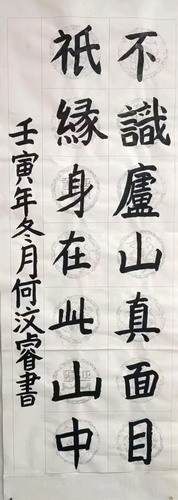 不識廬山真面目
祇緣身在此山中
壬寅年冬月何汶睿書